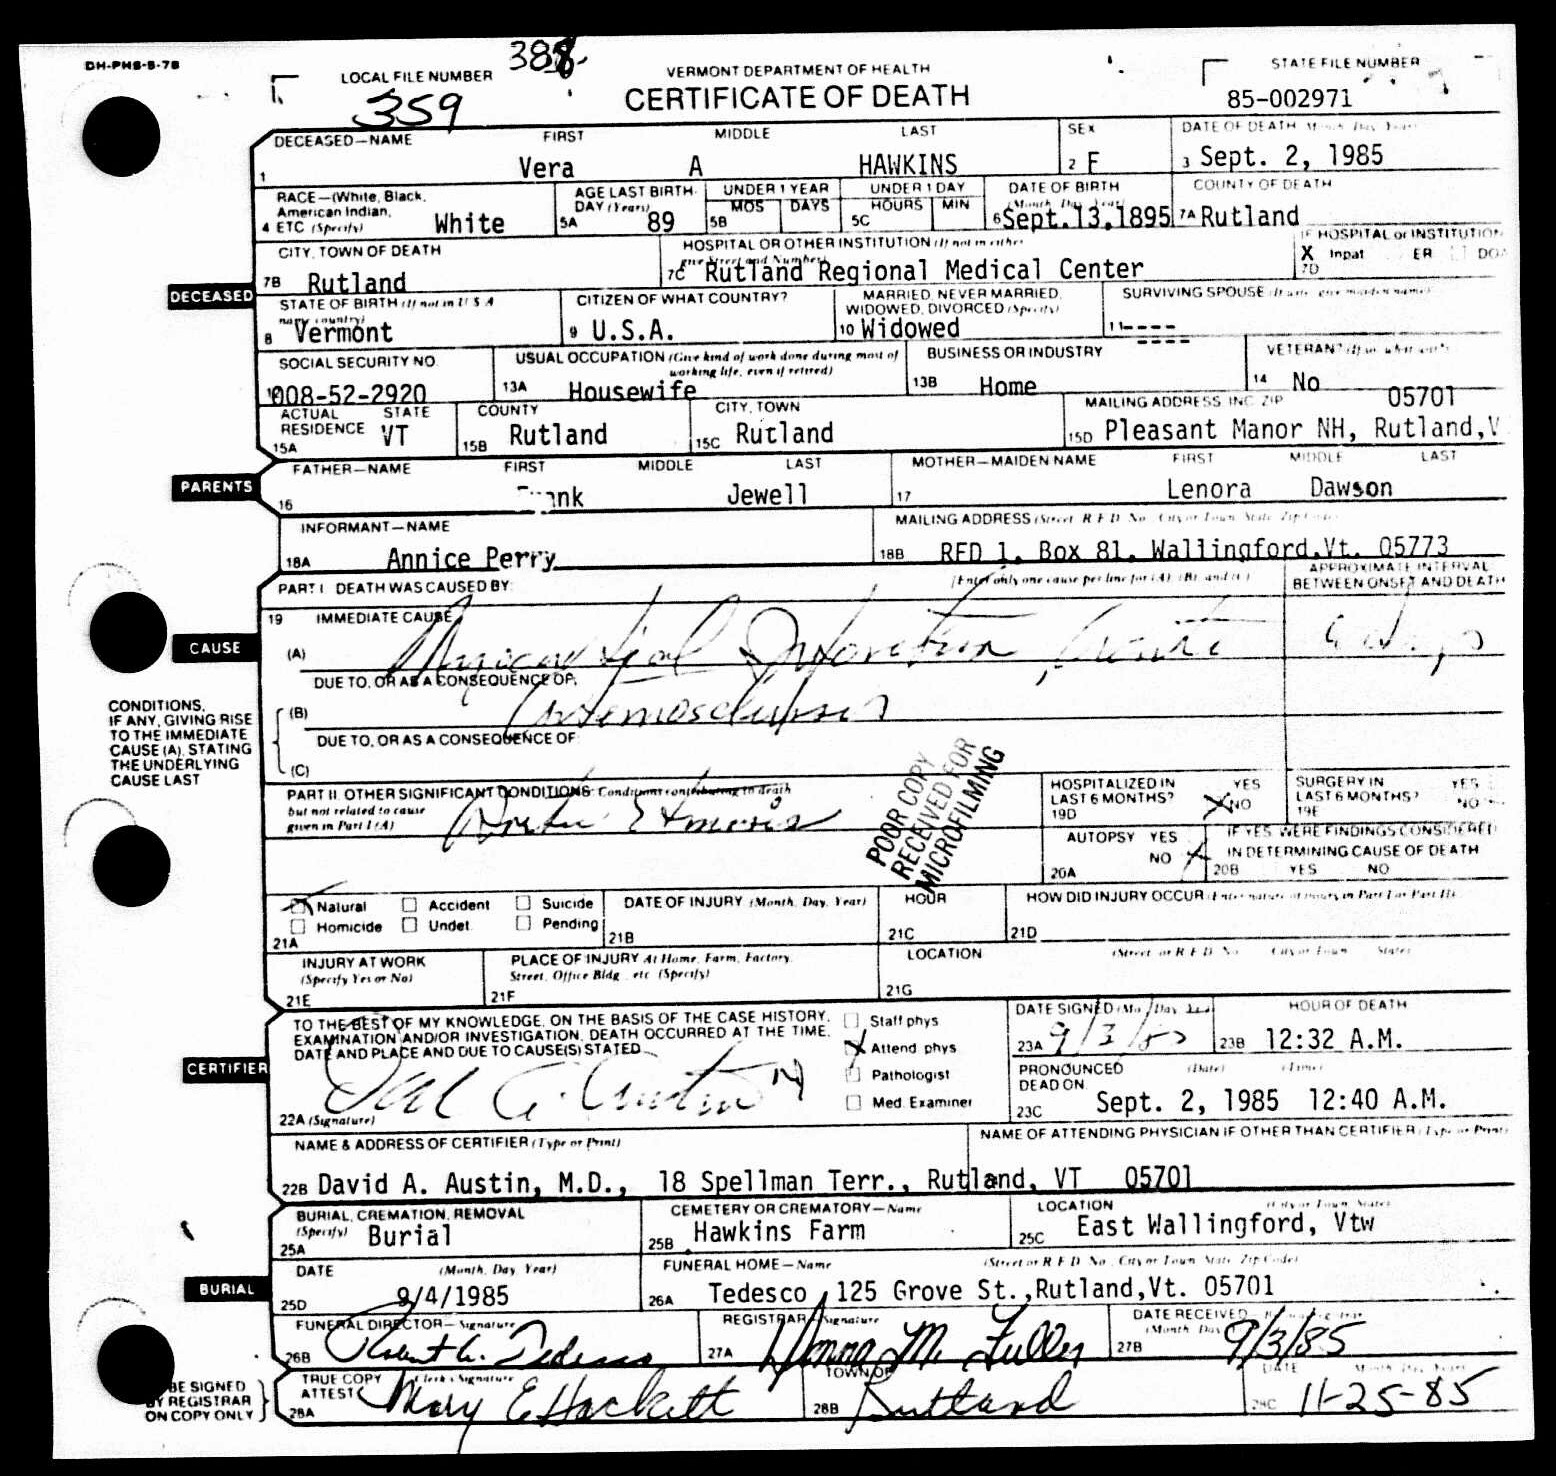 DH-PHS-8-78
LOCAL FILE NUMBER
359
VERMONT DEPARTMENT OF HEALTH
CERTIFICATE OF DEATH
STATE FILE NUMBER
85-002971
DECEASED—NAME FIRST MIDDLE LAST
1 Vera A HAWKINS
SEX
2 F
DATE OF DEATH (Month, Day, Year)
3 Sept. 2, 1985
RACE—(White, Black, American Indian,
4 ETC (Specify) White
AGE LAST BIRTH-
DAY (Years)
5A 89
UNDER 1 YEAR
MOS DAYS
5B
UNDER 1 DAY
HOURS MIN
5C
DATE OF BIRTH
(Month, Day, Year)
6 Sept.13,1895
COUNTY OF DEATH
7A Rutland
CITY, TOWN OF DEATH
7B Rutland
HOSPITAL OR OTHER INSTITUTION (If not in either
give Street and Number)
7C Rutland Regional Medical Center
IF HOSPITAL or INSTITUTION
X Inpat ER DOA
7D
DECEASED
STATE OF BIRTH (If not in U S A
name country)
8 Vermont
CITIZEN OF WHAT COUNTRY?
9 U.S.A.
MARRIED, NEVER MARRIED,
WIDOWED, DIVORCED (Specify)
10 Widowed
SURVIVING SPOUSE (If wife, give maiden name)
11 ----
----
SOCIAL SECURITY NO.
008-52-2920
USUAL OCCUPATION (Give kind of work done during most of
working life, even if retired)
13A Housewife
BUSINESS OR INDUSTRY
13B Home
VETERAN?
14 No
ACTUAL STATE
RESIDENCE VT
15A
COUNTY
15B Rutland
CITY, TOWN
15C Rutland
MAILING ADDRESS INC ZIP 05701
15D Pleasant Manor NH, Rutland,V
PARENTS
FATHER—NAME FIRST MIDDLE LAST
16 Jewell
MOTHER—MAIDEN NAME FIRST MIDDLE LAST
17 Lenora Dawson
INFORMANT—NAME
18A Annice Perry
MAILING ADDRESS (Street, R F D No., City or Town, State, Zip Code)
18B RFD 1, Box 81, Wallingford,Vt. 05773
PART I DEATH WAS CAUSED BY: (Enter only one cause per line for (A), (B), and (C))
APPROXIMATE INTERVAL
BETWEEN ONSET AND DEATH
CAUSE
19 IMMEDIATE CAUSE
(A) Myocardial Infarction, Acute
DUE TO, OR AS A CONSEQUENCE OF:
(B) Arteriosclerosis
DUE TO, OR AS A CONSEQUENCE OF:
(C)
CONDITIONS,
IF ANY, GIVING RISE
TO THE IMMEDIATE
CAUSE (A), STATING
THE UNDERLYING
CAUSE LAST
PART II OTHER SIGNIFICANT CONDITIONS: Conditions contributing to death
but not related to cause
given in Part I (A)
Aortic Stenosis
POOR COPY
RECEIVED FOR
MICROFILMING
HOSPITALIZED IN YES
LAST 6 MONTHS? NO
19D
SURGERY IN YES
LAST 6 MONTHS? NO
19E
AUTOPSY YES
NO
20A
IF YES WERE FINDINGS CONSIDERED
IN DETERMINING CAUSE OF DEATH
20B YES NO
Natural Accident Suicide
Homicide Undet. Pending
21A
DATE OF INJURY (Month, Day, Year)
21B
HOUR
21C
HOW DID INJURY OCCUR (Enter nature of injury in Part I or Part II)
21D
INJURY AT WORK
(Specify Yes or No)
21E
PLACE OF INJURY At Home, Farm, Factory,
Street, Office Bldg., etc. (Specify)
21F
LOCATION (Street or R.F.D. No. City or Town State)
21G
CERTIFIER
TO THE BEST OF MY KNOWLEDGE, ON THE BASIS OF THE CASE HISTORY,
EXAMINATION AND/OR INVESTIGATION, DEATH OCCURRED AT THE TIME,
DATE AND PLACE AND DUE TO CAUSE(S) STATED
22A (Signature)
Staff phys
Attend phys
Pathologist
Med. Examiner
DATE SIGNED (Mo., Day, Yr.)
23A 9/3/85
HOUR OF DEATH
23B 12:32 A.M.
PRONOUNCED (Date) (Time)
DEAD ON:
23C Sept. 2, 1985 12:40 A.M.
NAME & ADDRESS OF CERTIFIER (Type or Print)
22B David A. Austin, M.D., 18 Spellman Terr., Rutland, VT 05701
NAME OF ATTENDING PHYSICIAN IF OTHER THAN CERTIFIER (Type or Print)
BURIAL
BURIAL, CREMATION, REMOVAL
(Specify) Burial
25A
CEMETERY OR CREMATORY—Name
25B Hawkins Farm
LOCATION (City or Town, State)
25C East Wallingford, Vtw
DATE (Month, Day, Year)
25D 9/4/1985
FUNERAL HOME—Name (Street or R.F.D. No., City or Town, State, Zip Code)
26A Tedesco, 125 Grove St.,Rutland,Vt. 05701
FUNERAL DIRECTOR—Signature
26B Robert A. Tedesco
REGISTRAR—Signature
27A Donna M. Fuller
DATE RECEIVED
27B 9/3/85
BE SIGNED
BY REGISTRAR
ON COPY ONLY
TRUE COPY Clerk's Signature
ATTEST
28A Mary E Hackett
TOWN OF
28B Rutland
DATE Month, Day, Year
28C 11-25-85